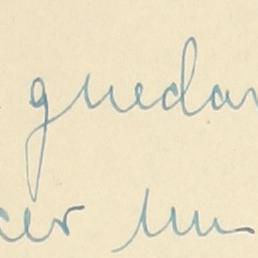 guedar
cer un